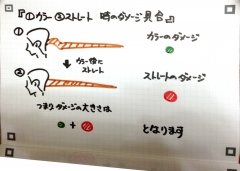 『①カラー ②ストレート 時のダメージ具合』
①
カラーのダメージ
カラー後に
ストレート
②
ストレートのダメージ
つまりダメージの大きさは
+
となります